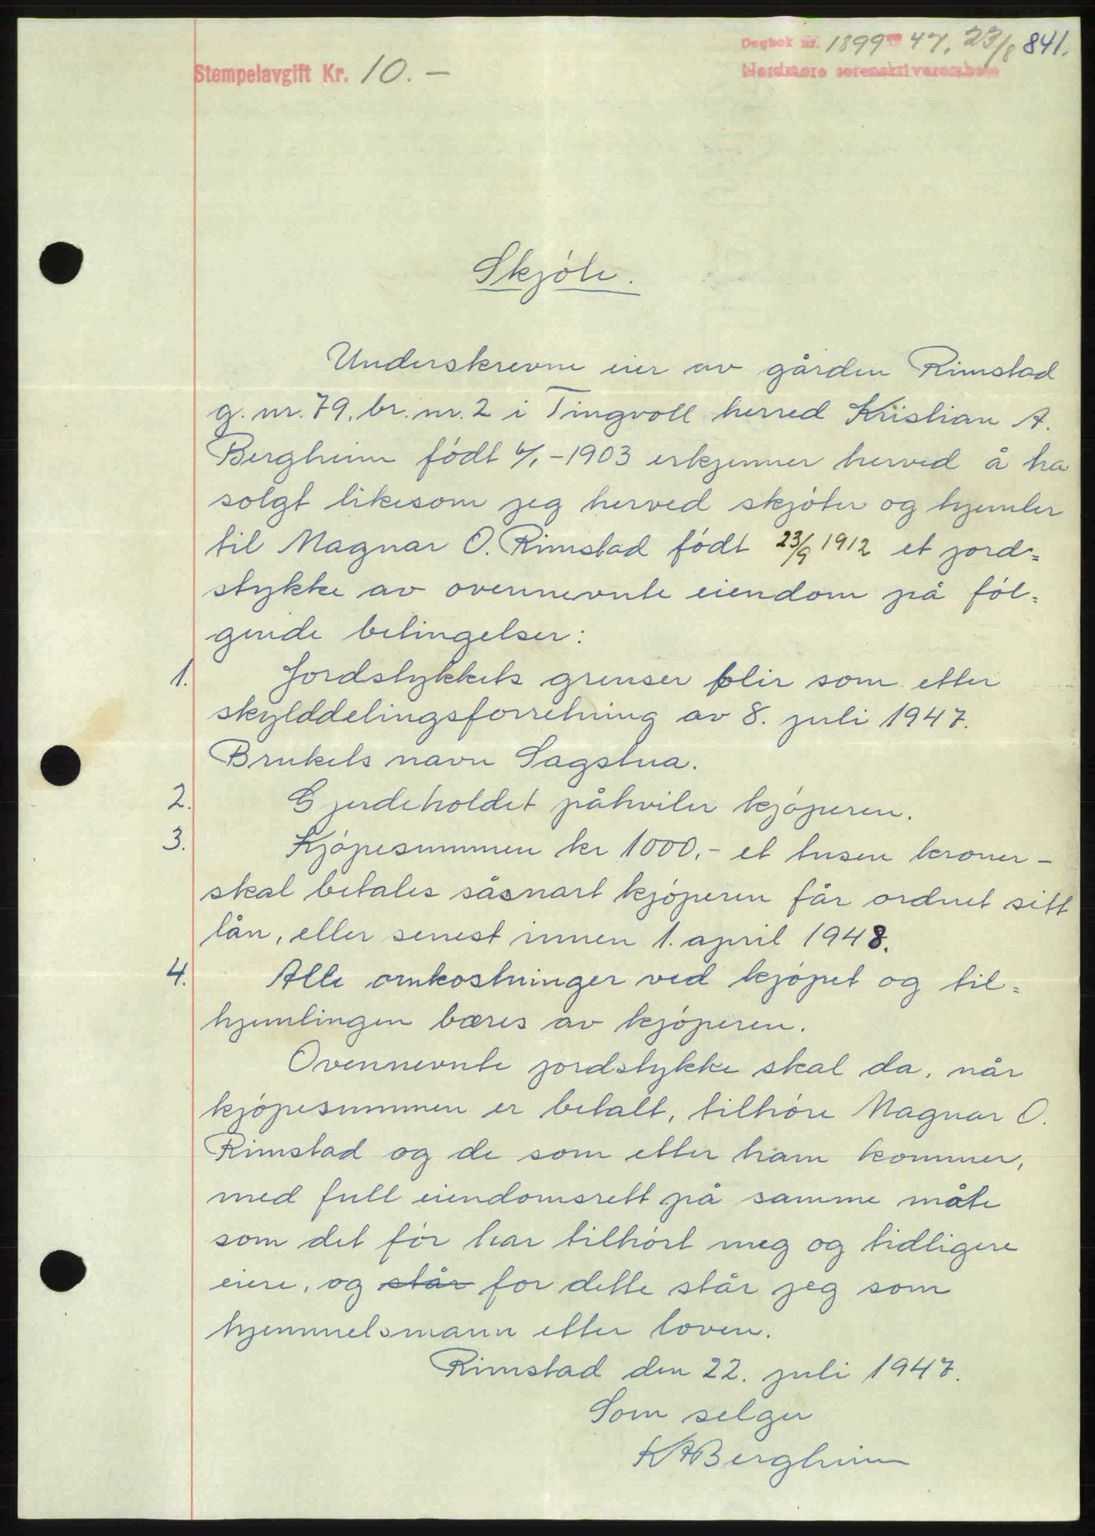 Dagbok nr. 1899 19 47, 23/8 841.
Nordmøre sorenskriverembete
Stempelavgift Kr. 10.-
Skjöte.
Underskrevne eier av gården Rimstad
g. nr. 79, br. nr. 2 i Tingvoll herred Kristian A.
Bergheim födt 6/1-1903 erkjenner herved å ha
solgt likesom jeg herved skjöter og hjemler
til Magnar O. Rimstad födt 23/9 1912 et jord=
stykke av ovennevnte eiendom på föl=
gende betingelser:
1. Jordstykkets grenser blir som etter
skylddelingsforretning av 8. juli 1947.
Brukets navn Sagstua.
2. Gjerdeholdet påhviler kjöperen.
3. Kjöpesummen kr 1000,- et tusen kroner -
skal betales såsnart kjöperen får ordnet sitt
lån, eller senest innen 1. april 1948.
4. Alle omkostninger ved kjöpet og til=
hjemlingen bæres av kjöperen.
Ovennevnte jordstykke skal da, når
kjöpesummen er betalt, tilhöre Magnar O.
Rimstad og de som etter ham kommer,
med full eiendomsrett på samme måte
som det för har tilhört meg og tidligere
eiere, og står for dette står jeg som
hjemmelsmann etter loven.
Rimstad den 22. juli 1947.
Som selger
K A Bergheim